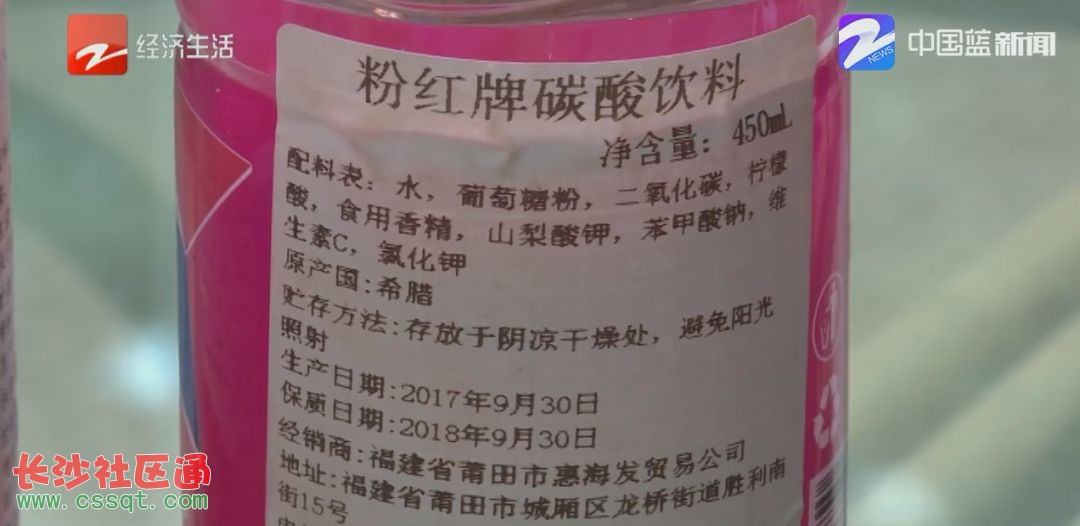 经济生活
中国蓝新闻
NEWS
粉红牌碳酸饮料
净含量：450mL
配料表：水，葡萄糖粉，二氧化碳，柠檬
酸，食用香精，山梨酸钾，苯甲酸钠，维
生素C，氯化钾
原产国:希腊
贮存方法:存放于阴凉干燥处，避免阳光
照射
生产日期:2017年9月30日
保质日期:2018年9月30日
经销商:福建省莆田市惠海发贸易公司
地址:福建省莆田市城厢区龙桥街道胜利南
街15号
长沙社区通
www.cssqt.com